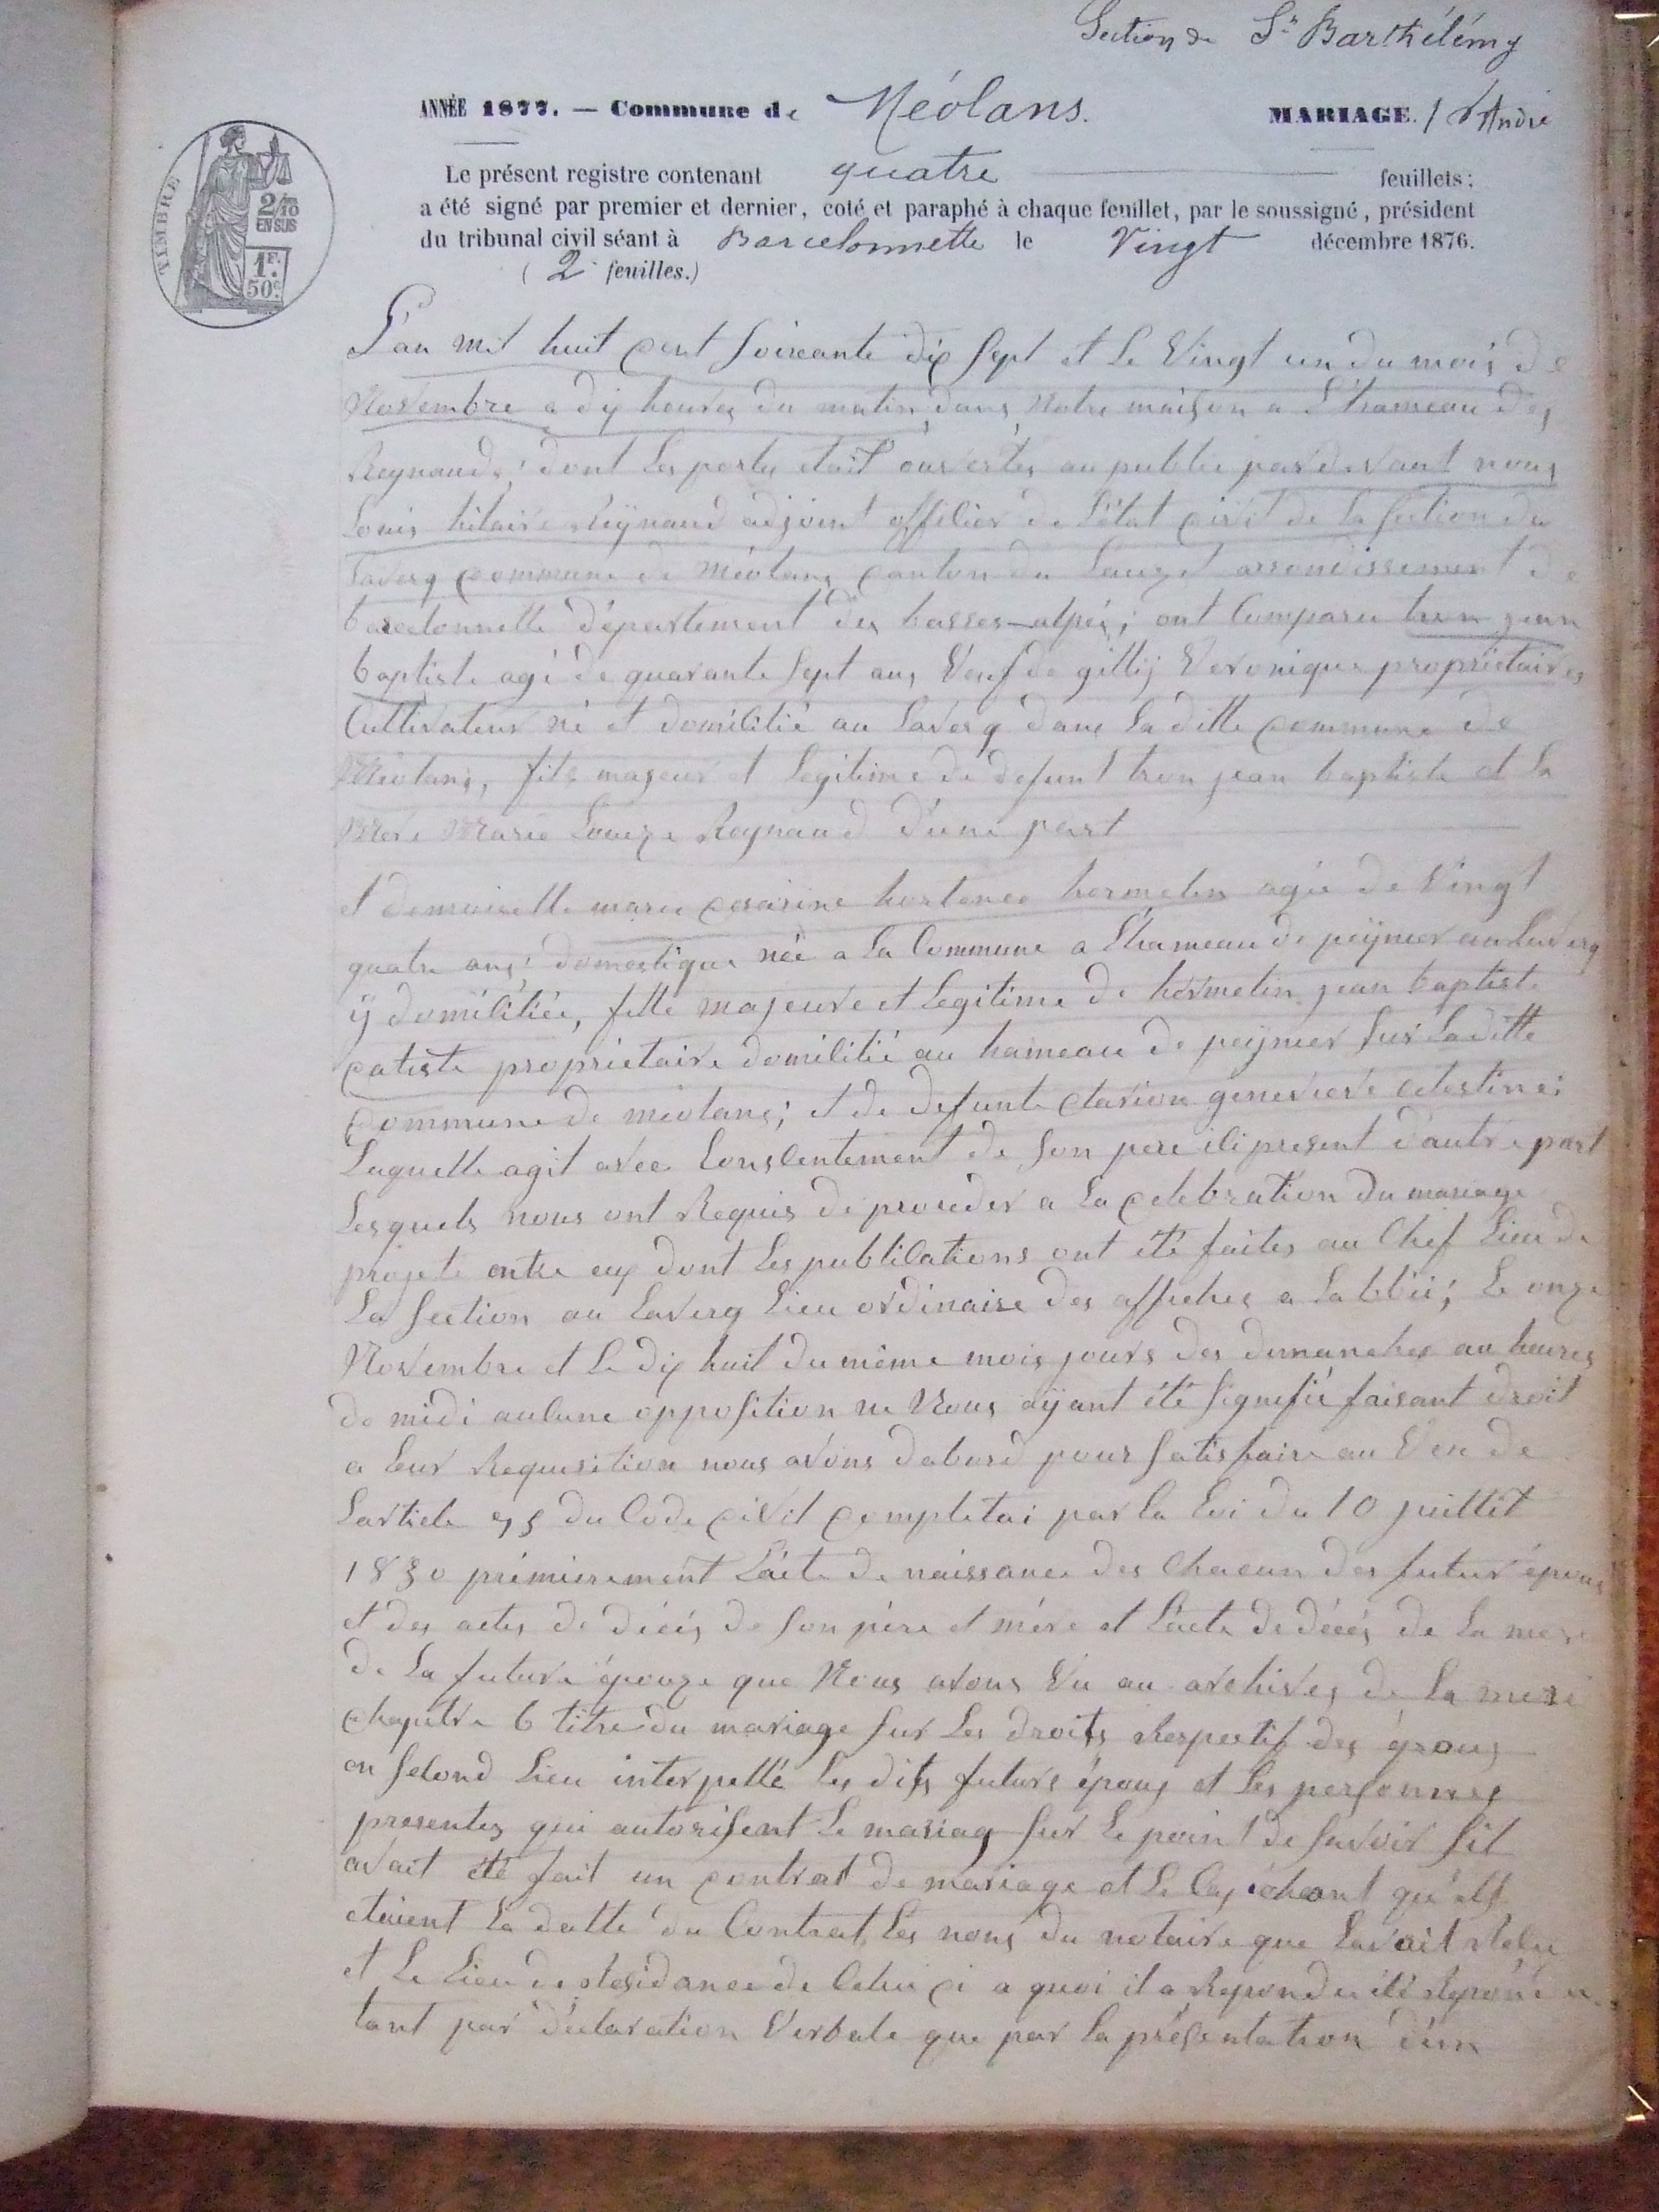 Section de St Barthélémy
ANNÉE 1877. — Commune de Méolans. MARIAGE. 1 André
Le présent registre contenant quatre feuillets;
a été signé par premier et dernier, coté et paraphé à chaque feuillet, par le soussigné, président
du tribunal civil séant à Barcelonnette le Vingt décembre 1876.
(2 feuilles.)
TIMBRE
2/10
EN SUS
1F.
50c.
L'an mil huit cent soixante dix sept et le Vingt un du mois de
Novembre a dix heures du matin dans Notre maison a L'hameau des
Reynauds; dont les portes etait ouvertes au public pardevant nous
Louis hilaire Reynaud adjoint officier de L'état civil de la section du
Laverq commune de méolans canton du Lauzet arrondissement de
barcelonnette département des basses-alpes; ont Comparu tron jean
baptiste agé de quarante sept ans Veuf de gilly Veronique propriétaires
Cultivateur né et domicilié au Laverq dans la ditte commune de
Méolans, fils majeur et legitime de defunt tron jean baptiste et la
Mère Marie Louize Reynaud d'une part
et demoiselle marie cesarine hortence hermelin agée de Vingt
quatre ans; domestique née a la Commune a L'hameau de peynier au Laverq
ÿ domiciliée, fille majeure et legitime de hermelin jean baptiste
proprietaire domicilié au hameau de peynier sur laditte
commune de méolans; et de defunte clarion genevieve celestine;
Laquelle agit avec Conscentement de son pere ici present d'autre part
Lesquels nous ont Requis de proceder a La celebration du mariage
projeté entre eux dont Les publications ont été faites au Chef Lieu de
La section au Laverq Lieu ordinaire des affiches a Labbéie; Le onze
Novembre et Le dix huit du même mois jours des dimanches au heures
de midi aucune opposition ne Nous aÿant été signifié faisant droit
a leur Requisition nous avons dabord pour satisfaire au Veu de
Larticle 75 du Code civil completai par la Loi du 10 juillet
1850 prémierement L'acte de naissance des Chacun des futur épous
et des actes de décés de son père et mère et L'acte de décés de La mere
de La future épouze que Nous avons Vu au archives de la merie
chapitre 6 titre du mariage sur Les droits Respectif des épous
en second Lieu interpellé les dits futurs épous et Les personnes
presentes qui autorisent Le mariag sur Le point de savoir sil
avait été fait un contrat de mariage et Le Cas échéant qu'elle
etaient La datte du Contrat Les noms du notaire que Lavait Resu
et Le Lieu de Residance de Celui ci a quoi il a Repondu
tant par déclaration Verbale que par la présentation d'un